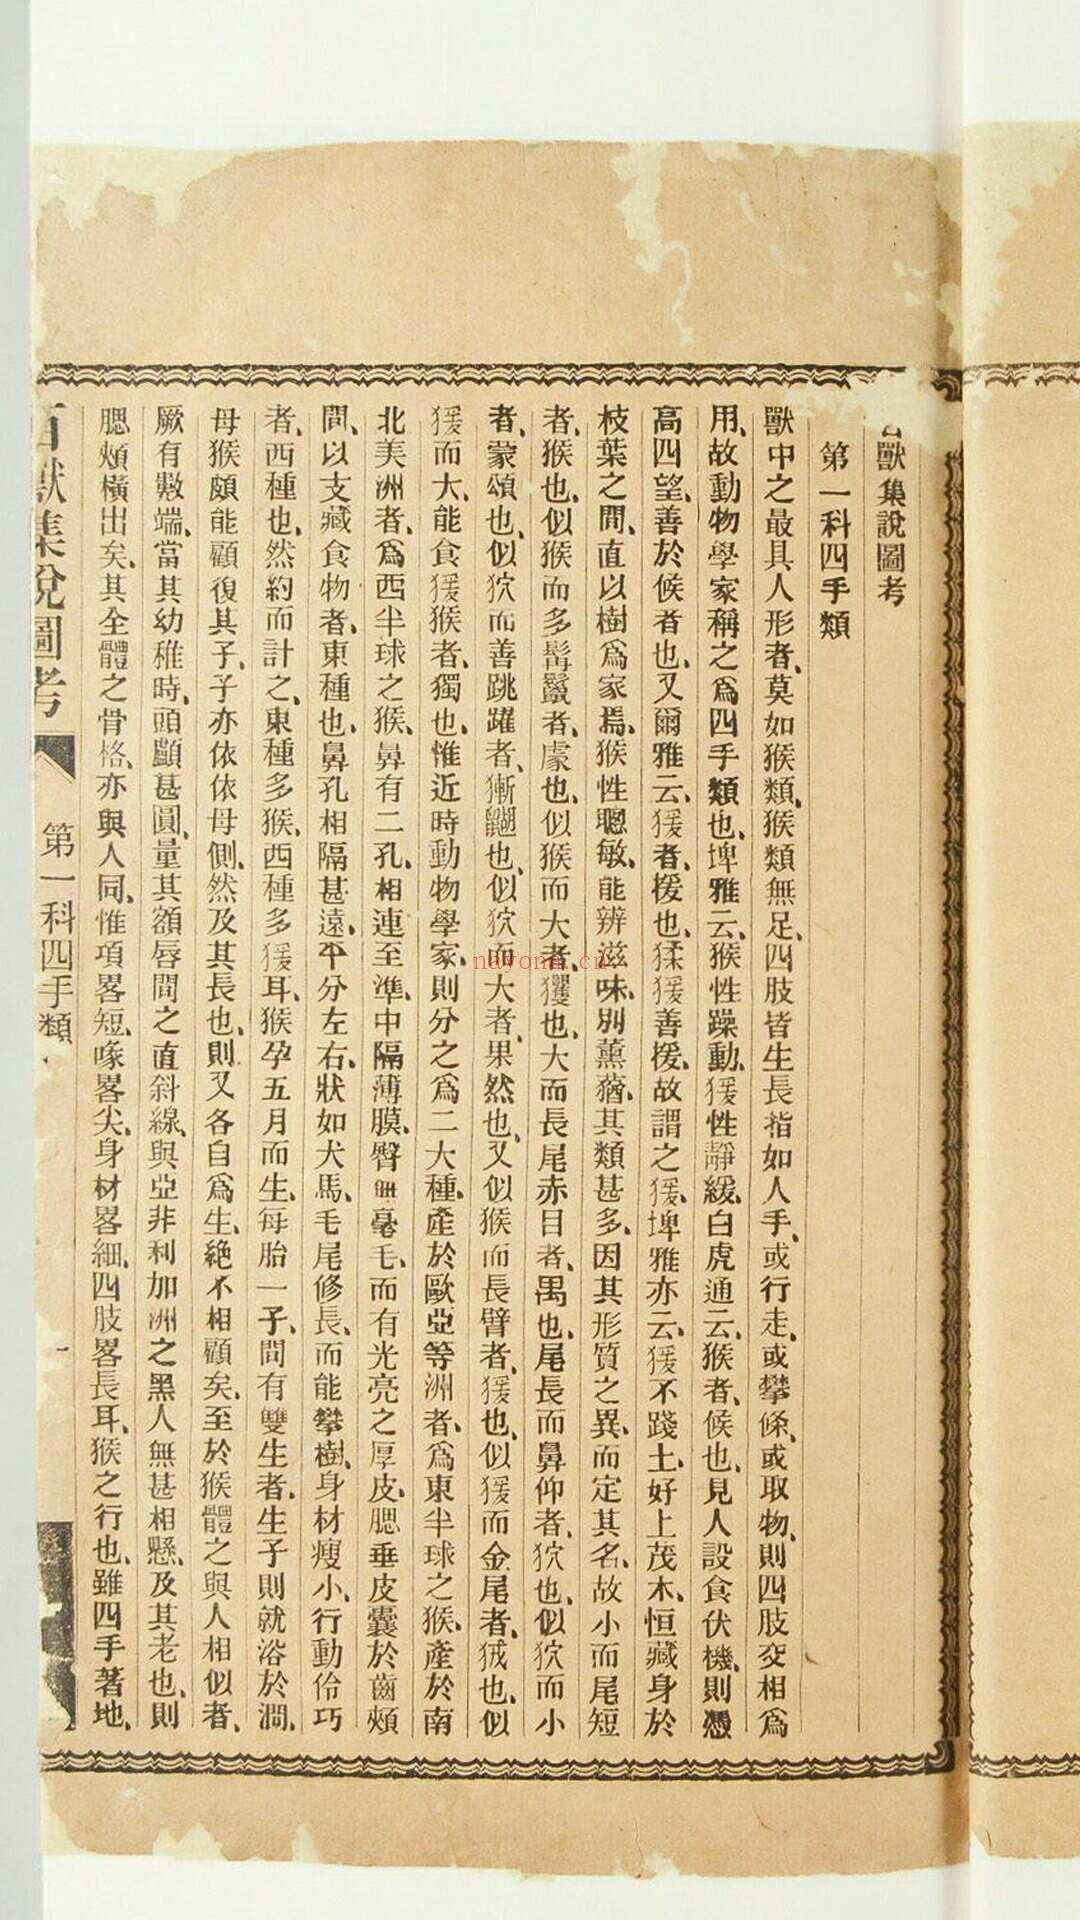 獸集說圖考
第一科四手類
獸中之最具人形者、莫如猴類、猴類無足、四肢皆生長指如人手、或行走、或攀條、或取物、則四肢交相爲
用、故動物學家稱之爲四手類也、埤雅云、猴性躁動、猨性靜緩、白虎通云、猴者、候也、見人設食伏機、則憑
高四望、善於候者也、又爾雅云、猨者、援也、猱猨善援、故謂之猨、埤雅亦云、猨不踐土、好上茂木、恒藏身於
枝葉之間、直以樹爲家焉、猴性聰敏、能辨滋味、別薰蕕、其類甚多、因其形質之異、而定其名、故小而尾短
者、猴也、似猴而多髯鬣者、豦也、似猴而大者、玃也、大而長尾赤目者、禺也、尾長而鼻仰者、狖也、似狖而小
者、蒙頌也、似狖而善跳躍者、獑䶉也、似狖而大者、果然也、又似猴而長臂者、猨也、似猨而金尾者、狨也、似
猨而大、能食猨猴者、獨也、惟近時動物學家、則分之爲二大種、產於歐亞等洲者、爲東半球之猴、產於南
北美洲者、爲西半球之猴、鼻有二孔、相連至準、中隔薄膜、臀無毫毛、而有光亮之厚皮、腮垂皮囊於齒頰
間、以支藏食物者、東種也、鼻孔相隔甚遠、平分左右、狀如犬馬、毛尾修長、而能攀樹、身材瘦小、行動伶巧
者、西種也、然約而計之、東種多猴、西種多猨耳、猴孕五月而生、每胎一子、間有雙生者、生子則就浴於澗、
母猴頗能顧復其子、子亦依依母側、然及其長也、則又各自爲生、絕不相顧矣、至於猴體之與人相似者、
厥有數端、當其幼稚時、頭顱甚圓、量其額唇間之直斜線、與亞非利加洲之黑人無甚相懸、及其老也、則
腮頰橫出矣、其全體之骨格、亦與人同、惟項畧短、喙畧尖、身材畧細、四肢畧長耳、猴之行也、雖四手著地、
百獸集說圖考
第一科四手類
一
nayona.cn